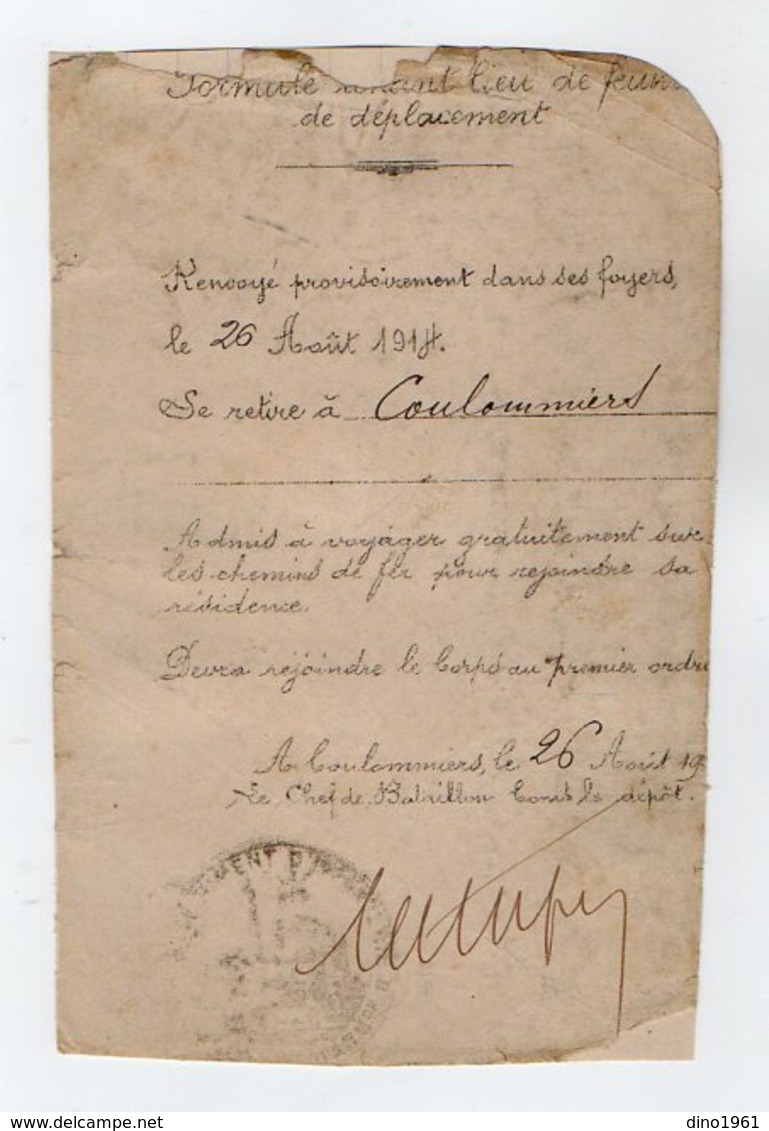 Formule tenant lieu de feuil
de déplacement
Renvoyé provisoirement dans ses foyers,
le 26 Août 1914.
Se retire à Coulommiers
Admis à voyager gratuitement sur
les chemins de fer pour rejoindre sa
résidence.
Devra rejoindre le Corps au premier ordre
A Coulommiers, le 26 Août 19
Le Chef de Bataillon Comt le dépôt.
GIMENT D'
delcampe.net
dino1961